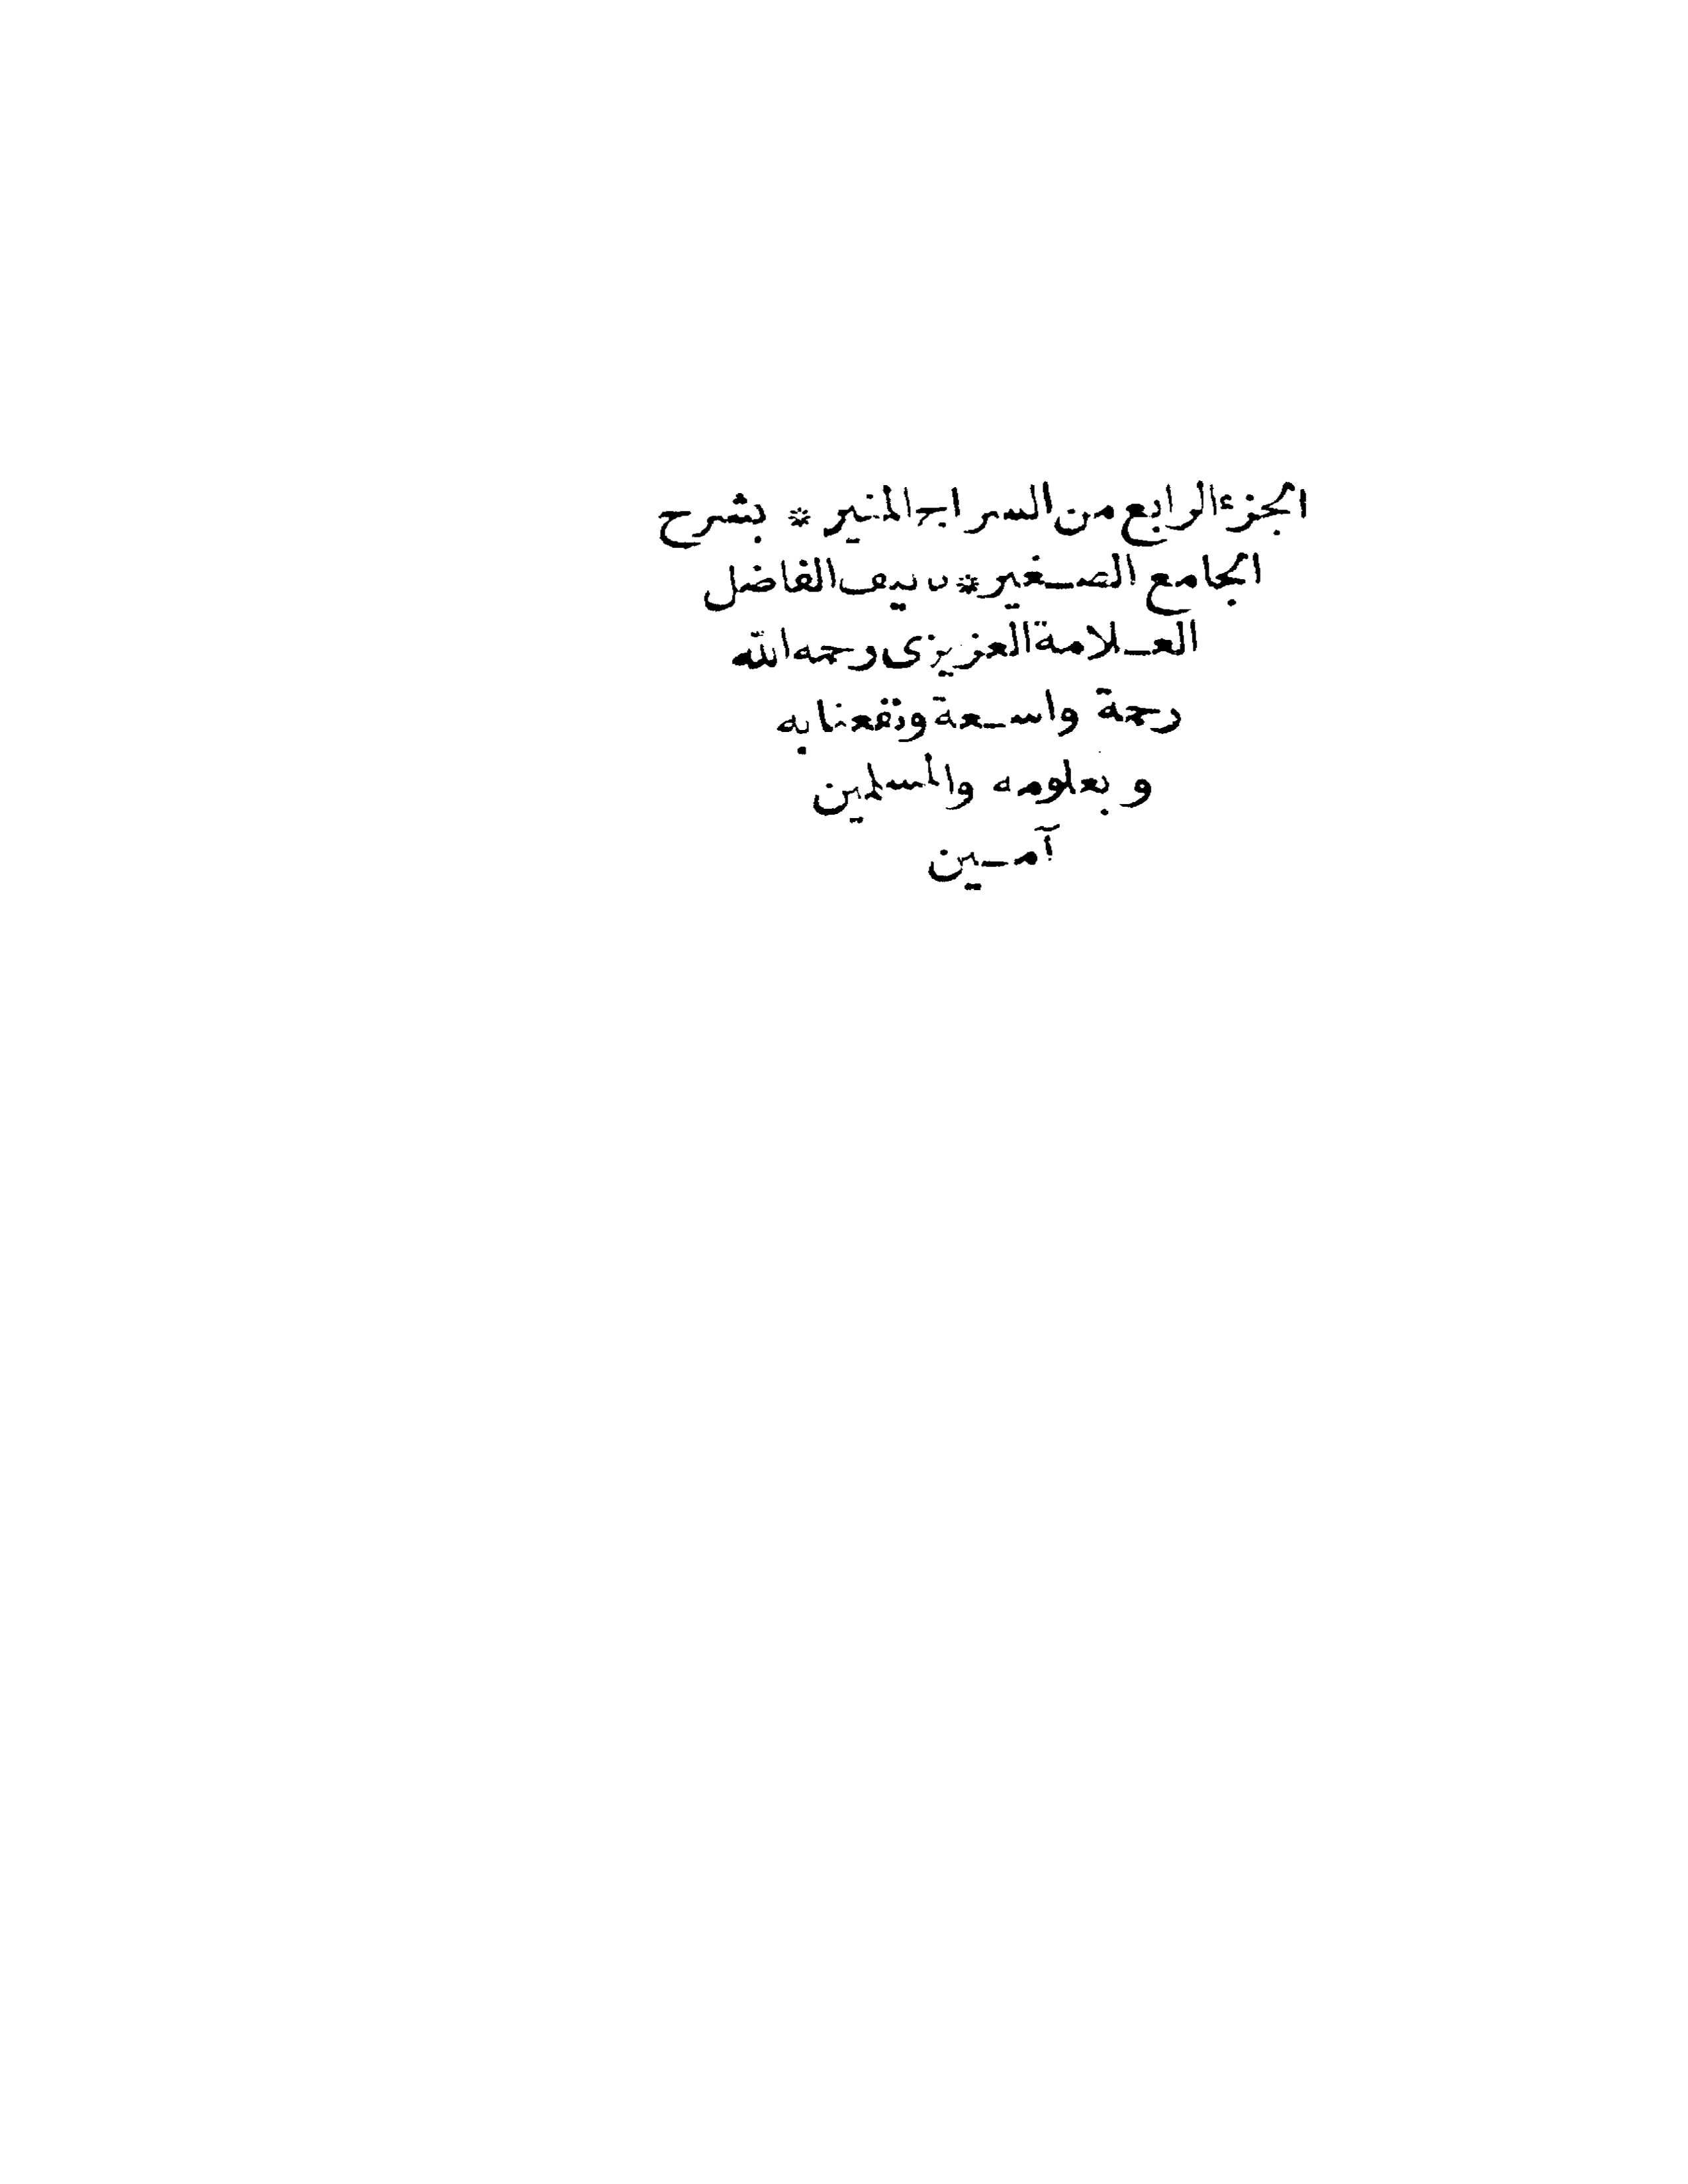 الجزء الرابع من السراج المنير * بشرح
الجامع الصغير * تأليف الفاضل
العلامة العزيزى رحمه الله
رحمة واسعة ونفعنا به
وبعلومه والمسلمين
آمين